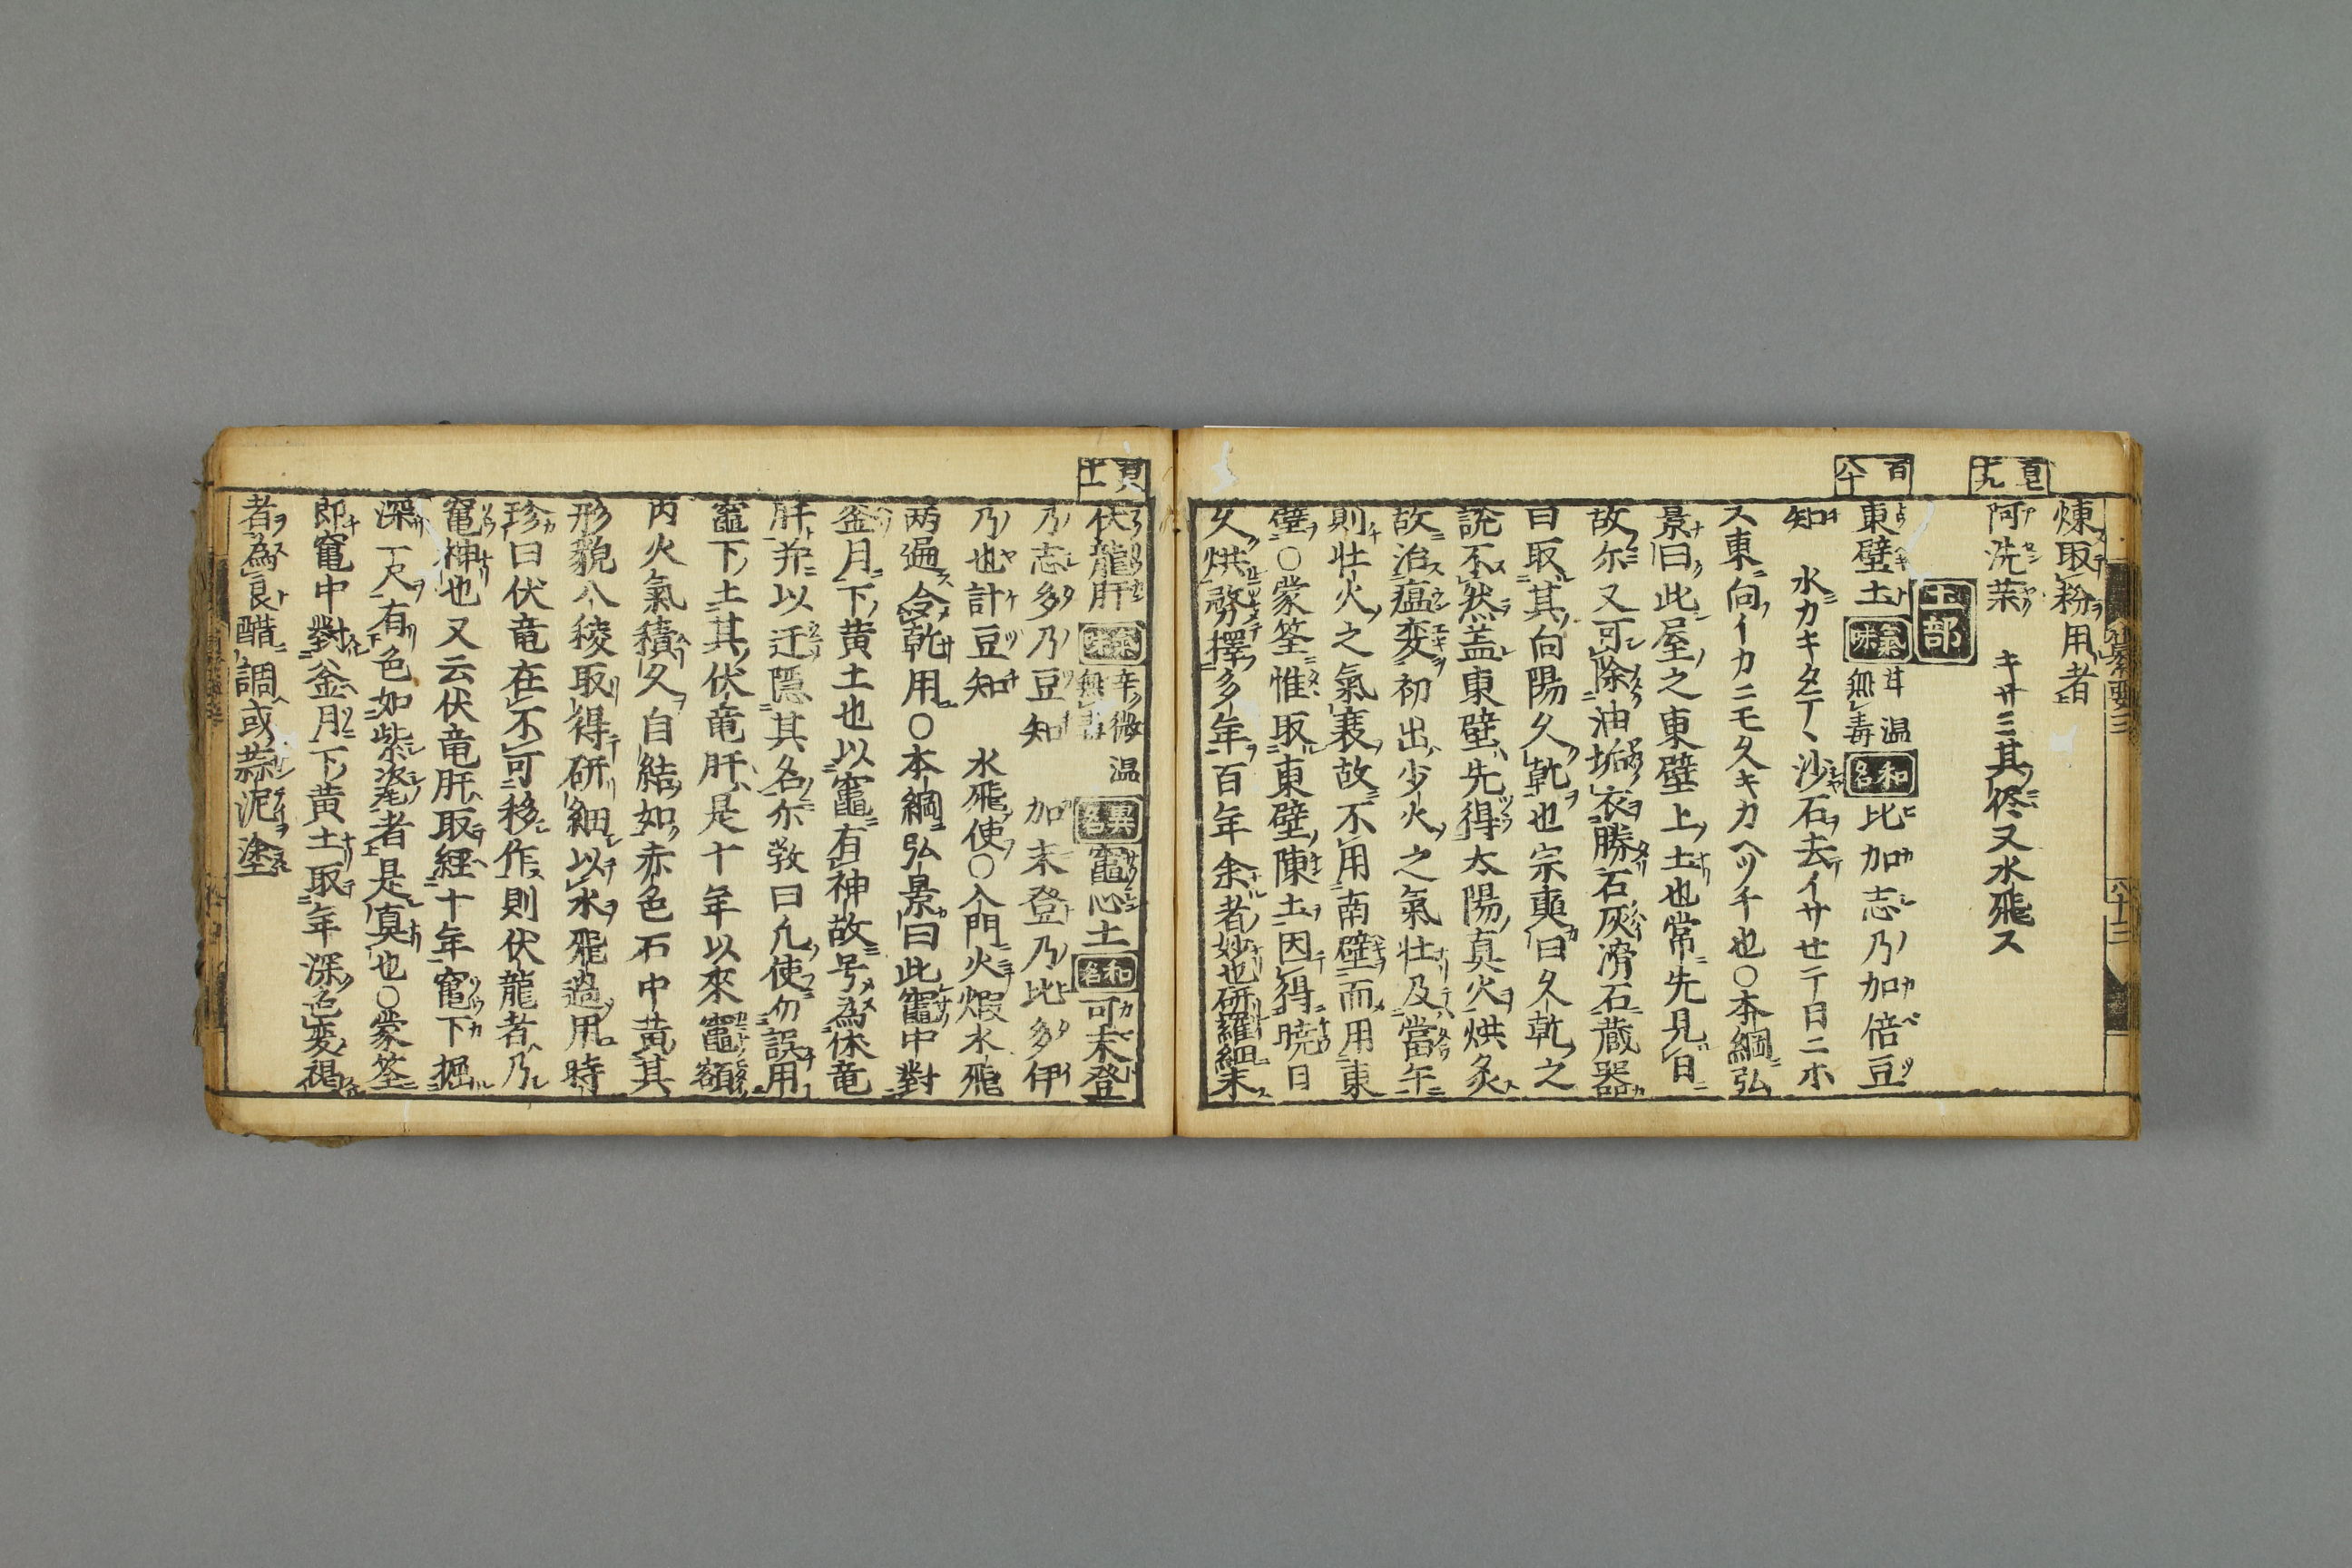 煉取粉用者
百九十
阿洗菜 キサミ其侭又水飛ス
土部
百八十
東壁土 氣味 甘温無毒 和名 比加志乃加倍豆
知 水カキタテヽ沙石去イサセテ日ニホ
ス東向イカニモ久キカヘツチ也〇本綱弘
景曰此屋之東壁上土也常先見日
故尓又可除油垢衣勝石灰滑石蔵器
曰取其向陽久乾也宗奭曰久乾之
説不然盖東壁先得太陽真火烘炙
故治瘟変初出少火之氣壮及當午
則壮火之氣衰故不用南壁而用東
壁〇蒙筌惟取東壁陳土因得曉日
久烘務擇多年百年余者妙也研羅細末
伏龍肝 氣味 辛微温無毒 異名 竈心土 和名 可末登
乃志多乃豆知 加末登乃比多伊
乃也計豆知 水飛使〇入門火煆水飛
两遍令乾用〇本綱弘景曰此竈中對
釜月下黄土也以竈有神故号為伏竜
肝并以迂隠其名尓敩曰凡使勿誤用
竈下土其伏竜肝是十年以來竈額
内火氣積久自結如赤色石中黄其
形貌八稜取得研細以水飛過用時
珍曰伏竜在不可移作則伏龍者乃
竃神也又云伏竜肝取經十年竃下掘
深一尺有色如紫瓷者是真也〇蒙筌
即竃中對釜月下黄土取年深色変褐
者為良醋調或蒜泥塗